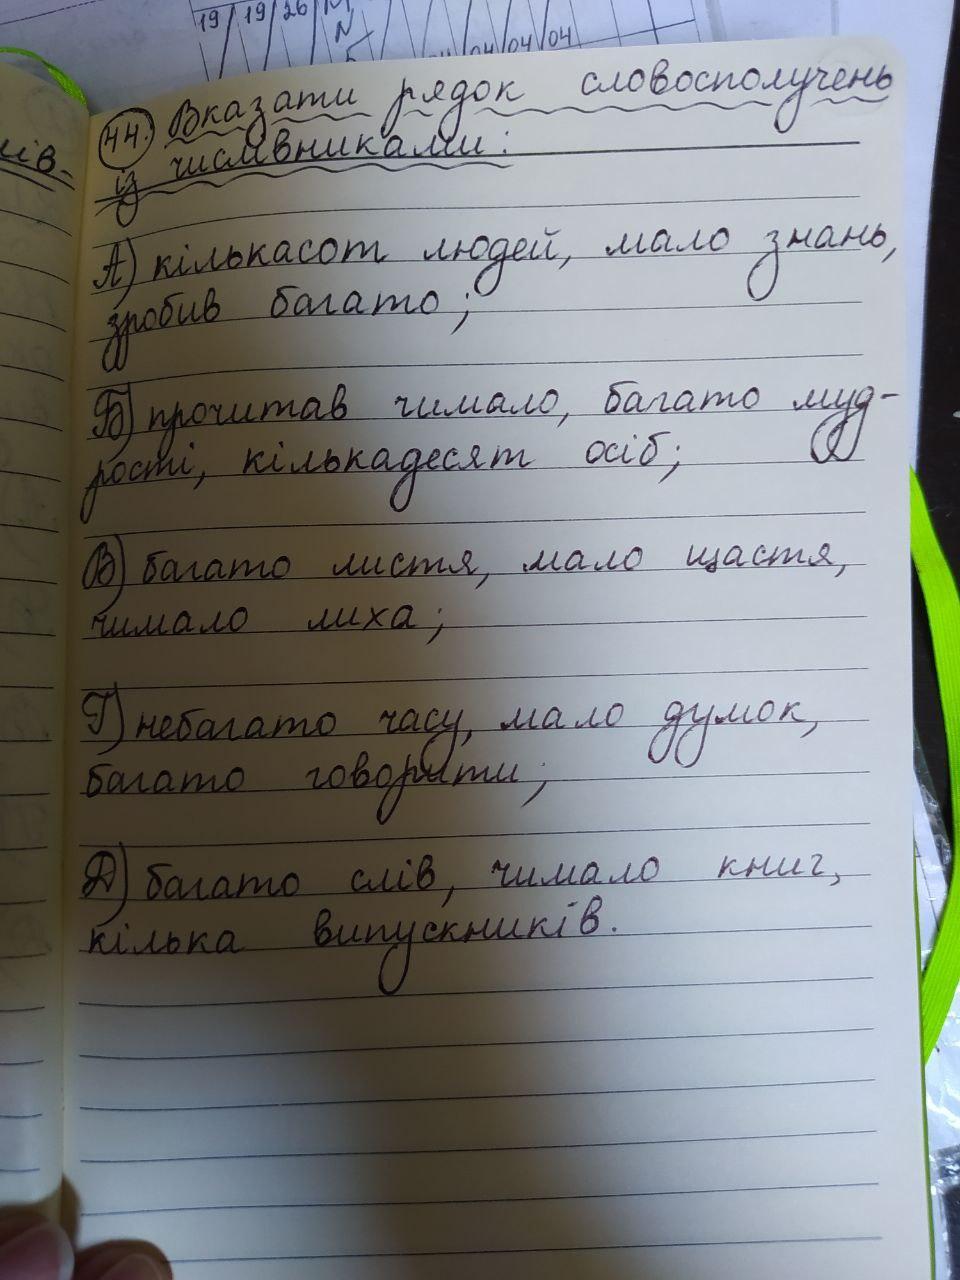 19 19 26
04 04 04
44. Вказати рядок словосполучень
із числівниками:
А) кількасот людей, мало знань,
зробив багато;
Б) прочитав чимало, багато муд-
рості, кількадесят осіб;
В) багато листя, мало щастя,
чимало лиха;
Г) небагато часу, мало думок,
багато говорити;
Д) багато слів, чимало книг,
кілька випускників.